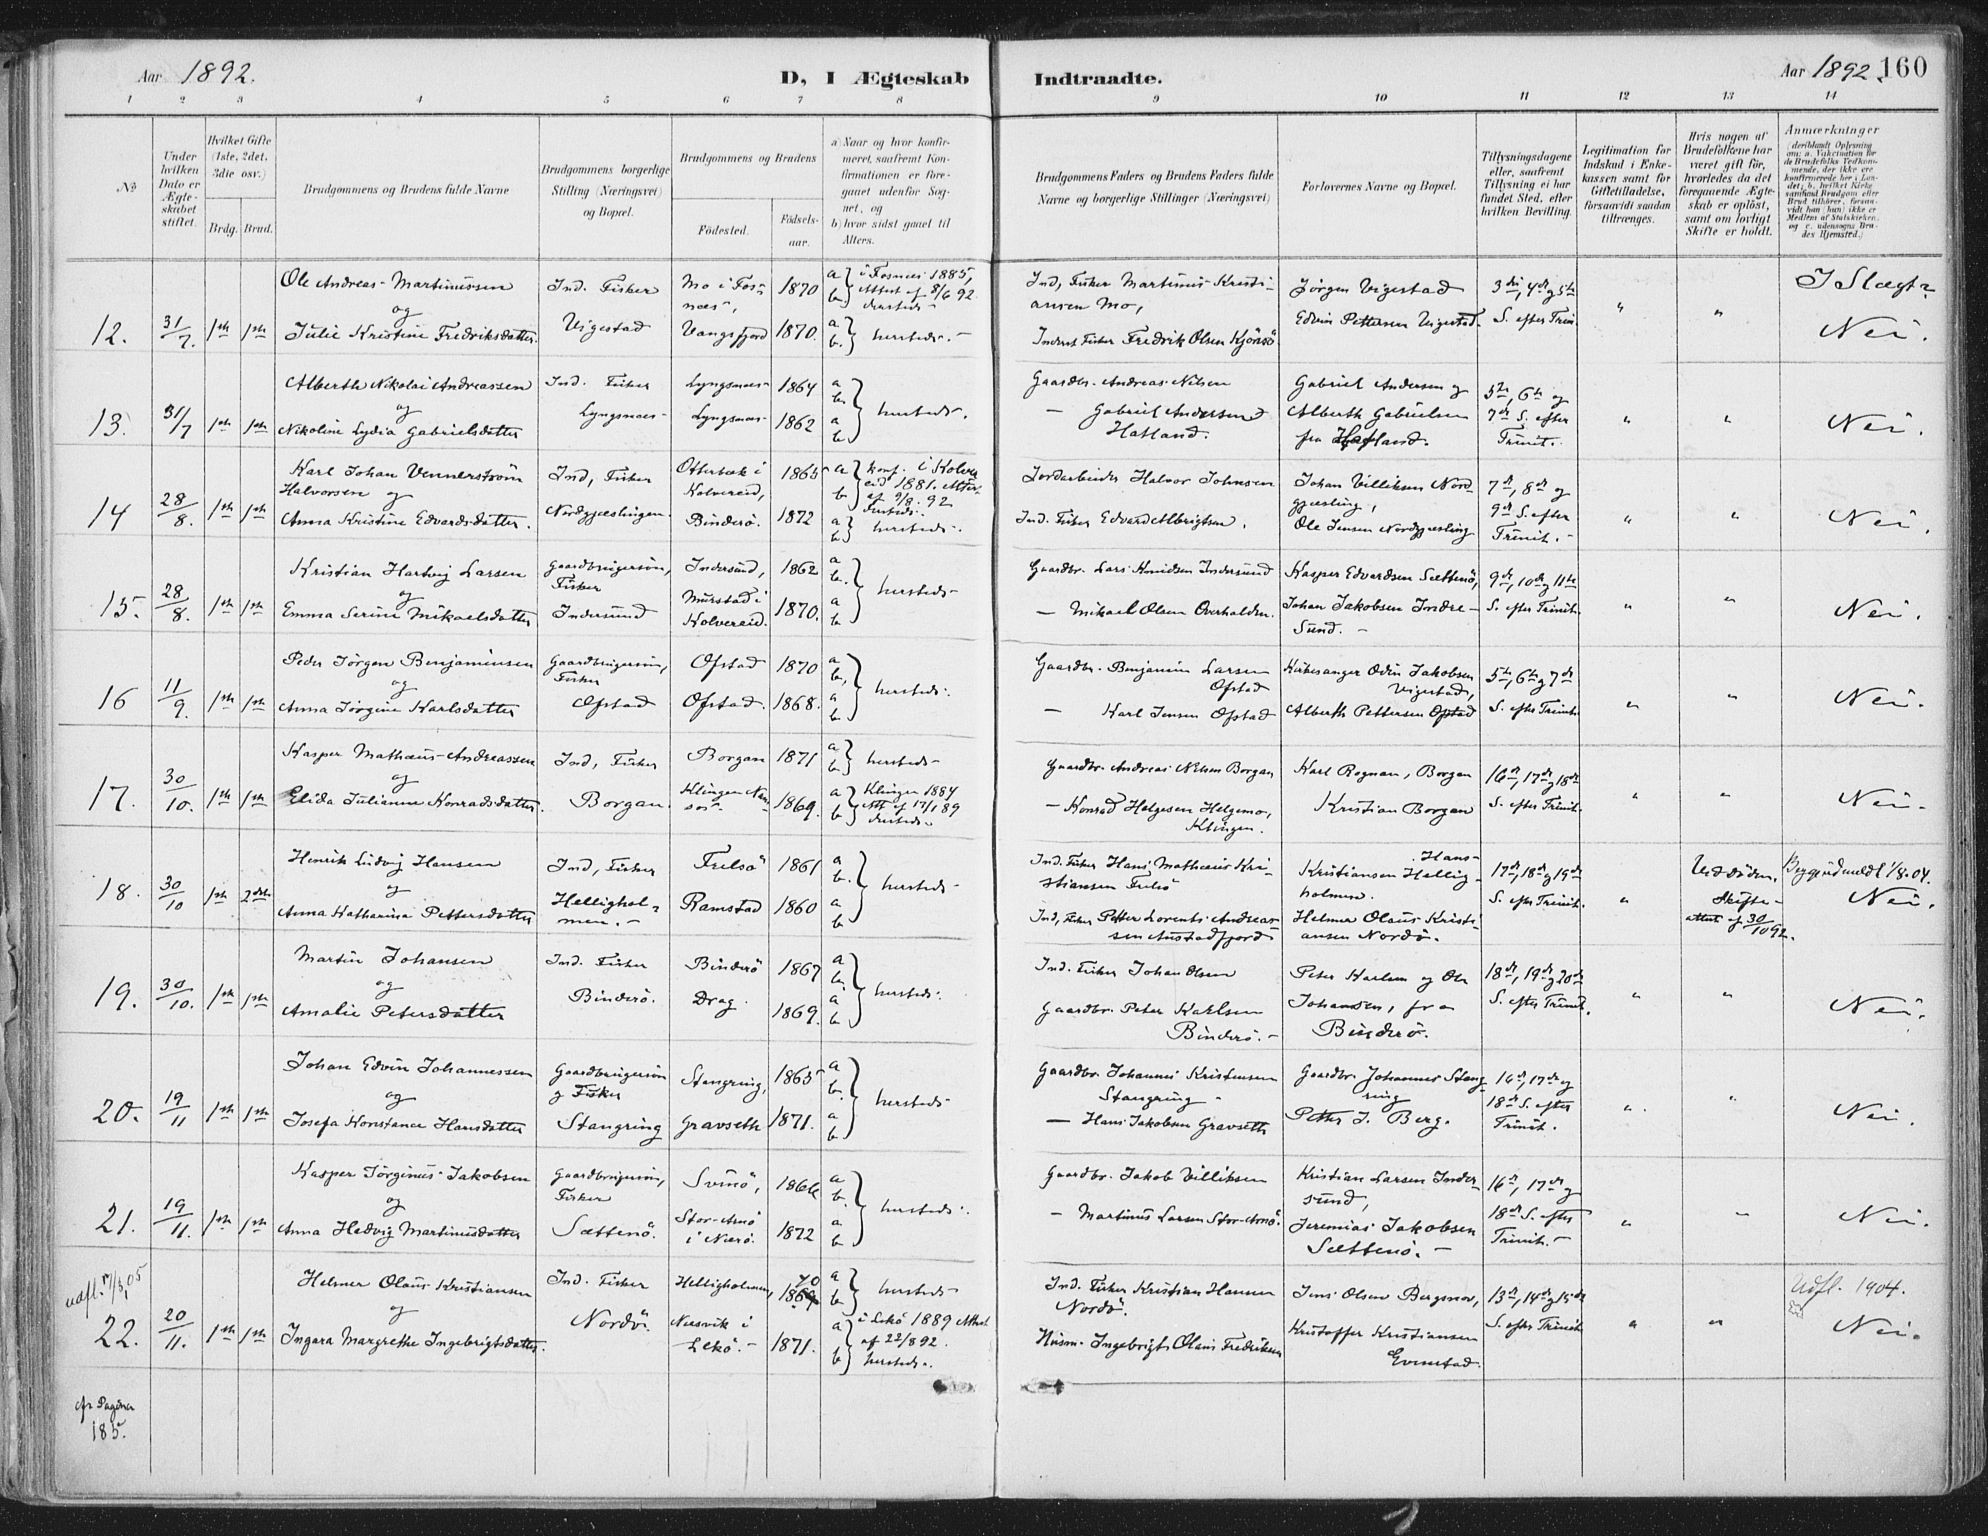 Aar 1892.
D, I Ægteskab Indtraadte.
Aar 1892. 160
1 2 3 4 5 6 7 8 9 10 11 12 13 14
№
Under hvilken Dato er Ægteskabet stiftet.
Hvilket Gifte (1ste, 2det, 3die osv.)
Brdg. Brud.
Brudgommens og Brudens fulde Navne
Brudgommens borgerlige Stilling (Næringsvei) og Bopæl.
Brudgommens og Brudens
Födested.
Födsels-aar.
a) Naar og hvor konfirmeret, saafremt Konfirmationen er foregaaet udenfor Sognet, og
b) hvor sidst gaaet til Alters.
Brudgommens Faders og Brudens Faders fulde Navne og borgerlige Stillinger (Næringsvei)
Forlovernes Navne og Bopæl.
Tillysningsdagene eller, saafremt Tillysning ei har fundet Sted, efter hvilken Bevilling.
Legitimation for Indskud i Enkekassen samt for Giftetilladelse, forsaavidt saadan tiltrænges.
Hvis nogen af Brudefolkene har været gift för, hvorledes da det foregaaende Ægteskab er oplöst, samt om lovligt Skifte er holdt.
Anmærkninger
(deriblandt Oplysning om: a. Vakcination for de Brudefolks Vedkommende, der ikke ere konfirmerede her i Landet; b. hvilket Kirkesamfund Brudgom eller Brud tilhörer, forsaavidt han (hun) ikke er Medlem af Statskirken, og c. udensogns Brudes Hjemsted.)
12. 31/7. 1ste 1ste
Ole Andreas Martinussen
og
Julie Kristine Fredriksdatter.
Ind. Fisker
Vigestad
Mo i Fosnæs, 1870
Vangsfjord 1870.
a b } i Fosnæs 1885, Attest af 8/6 92. hersteds
a b. } hersteds.
Ind, Fisker Martinus Kristiansen Mo,
Inderst Fisker Fredrik Olsen Kjönsö
Jörgen Vigestad
Edvin Pettersen Vigestad.
3die, 4de og 5te S. efter Trin.
" "
I Slægt?
Nei.
13. 31/7 1ste 1ste
Alberth Nikolai Andreassen
og
Nikoline Lydia Gabrielsdatter
Ind. Fisker
Lyngsnæs
Lyngsnæs 1864
Lyngsnæs 1862
a b. a b } hersteds.
Gaardbr. Andreas Nilsen
— Gabriel Andersen Hatland.
Gabriel Andersen og
Alberth Gabrielsen
fra Hatland.
5te, 6te og 7de S. efter Trinit.
" "
Nei.
14 28/8. 1ste 1ste
Karl Johan Vennerström
Halvorsen og
Anna Kristine Edvardsdatter.
Ind, Fisker
Nordgjæslingen.
Otterbæk i Kolvereid, 1865
Binderö. 1872
a b } konf. i Kolvereid 1881. Attest af 9/8. 92 hersteds.
a b. } hersteds.
Jordarbeider Halvor Johnsen
Ind. Fisker Edvard Albrigtsen.
Johan Villiksen Nordgjæsling,
Ole Jensen Nordgjæsling
7de, 8de og 9de S. efter Trinit.
" "
Nei.
15. 28/8. 1ste 1ste
Kristian Hartvig Larsen
og
Emma Serine Mikaelsdatter
Gaardbrugersön, Fisker
Indersund
Indersund, 1862
Murstad i Kolvereid. 1870.
a b. a b } hersteds
Gaardbr. Lars Knudsen Indersund
— Mikael Olsen Overhalden.
Kasper Edvardsen Sættenö,
Johan Jakobsen Indre-Sund.
9de, 10de og 11te S. efter Trinit.
" "
Nei.
16 11/9. 1ste 1ste
Peder Jörgen Benjaminsen
og
Anna Jörgine Karlsdatter
Gaardbrugersön, Fisker
Ofstad
Ofstad 1870
Ofstad. 1868.
a b, a b } hersteds.
Gaardbr. Benjamin Larsen Ofstad
— Karl Jensen Ofstad
Kirkesanger Odin Jakobsen Vigestad,
Alberth Pettersen Ofstad
5te, 6te og 7de S. efter Trinit.
" "
Nei.
17. 30/10. 1ste 1ste
Kasper Mathæus Andreassen
og
Elida Julianne Konradsdatter.
Ind, Fisker
Borgan
Borgan 1871
Klingen Namsos 1869.
a b } hersteds
a b } Klingen 1884 Att. af 17/1 89 hersteds
Gaardbr. Andreas Nilsen Borgan
— Konrad Helgesen Helgemo, Klingen.
Karl Rognan, Borgan
Kristian Borgan
16de, 17de og 18de S. efter Trinit.
" "
Nei.
18. 30/10 1ste 2det
Henrik Ludvig Hansen
og
Anna Katharina Pettersdatter
Ind, Fisker
Helligholmen.
Frelsö 1861
Ramstad 1860
a b. a b } hersteds
Ind. Fisker Hans Mathæus Kristiansen Frelsö
Ind, Fisker Petter Lorents Andreassen Austadfjord
Hans Kristiansen Helligholmen.
Helmer Olaus Kristiansen Nordö.
17de, 18de og 19de S. efter Trinit.
"
Ved döden. Skifteattest af 30/10 92.
1/8.04.
Nei.
19. 30/10. 1ste 1ste
Martin Johansen
og
Amalie Petersdatter
Ind. Fisker
Binderö.
Binderö 1867
Drag. 1869.
a b. a b } hersteds.
Ind. Fisker Johan Olsen
Gaardbr. Peter Karlsen Binderö.
Peter Karlsen og Ole Johansen, fra Binderö.
18de, 19de og 20de S. efter Trinit.
" "
Nei.
20. 19/11 1ste 1ste
Johan Edvin Johannessen
og
Josefa Konstance Hansdatter
Gaardbrugersön og Fisker
Stangring
Stangring, 1865
Gravseth 1871.
a b. a b } hersteds
Gaardbr. Johannes Kristensen Stangring
— Hans Jakobsen Gravseth
Gaardbr. Johannes Stangring
Petter J. Berg.
16de, 17de og 18de S. efter Trinit.
" "
Nei.
21. 19/11. 1ste 1ste
Kasper Jörginus Jakobsen
og
Anna Hedvig Martinusdatter
Gaardbrugersön, Fisker
Sættenö.
Svinö, 1866
Stor-Arnö i Nærö. 1872
a b. a b } hersteds.
Gaardbr. Jakob Villiksen
— Martinus Larsen Stor-Arnö.
Kristian Larsen Indersund,
Jeremias Jakobsen Sættenö.
16de, 17de og 18de S. efter Trinit.
" "
Nei.
udfl. 17/3,05
22. 20/11. 1ste 1ste
Helmer Olaus Kristiansen
og
Ingara Margrethe Ingebrigtsdatter.
Ind. Fisker
Nordö.
Helligholmen, 1870
Næsvik i Lekö. 1871.
a b. } hersteds
a b } i Lekö 1889 Attest af 22/8 92. hersteds.
Ind. Fisker Kristian Hansen Nordö.
Husm. Ingebrigt Olaus Fredriksen
Jens Olsen Bergsnov,
Kristoffer Kristiansen Evenstad.
13de, 14de og 15de S. efter Trinit
" "
Udfl. 1904.
Nei.
cfr. Pagina
185.